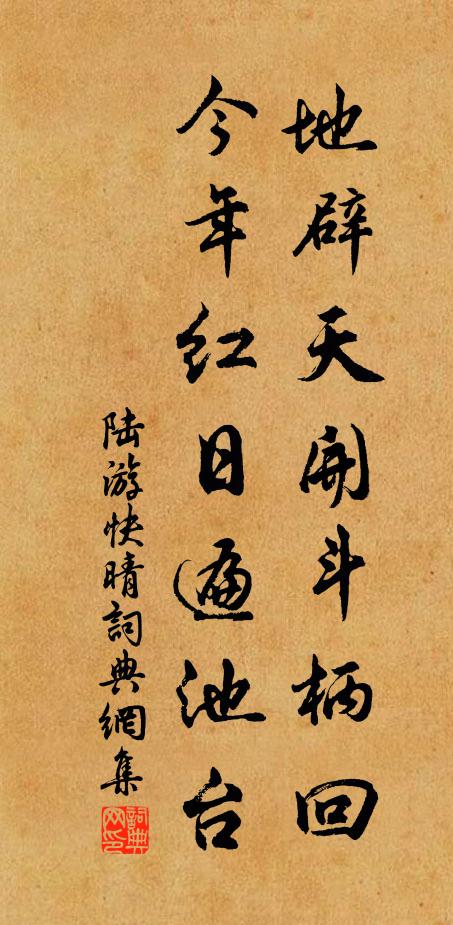 地辟天開斗柄回
今年红日遍池台
陆游快晴詞典網集
詞典網印